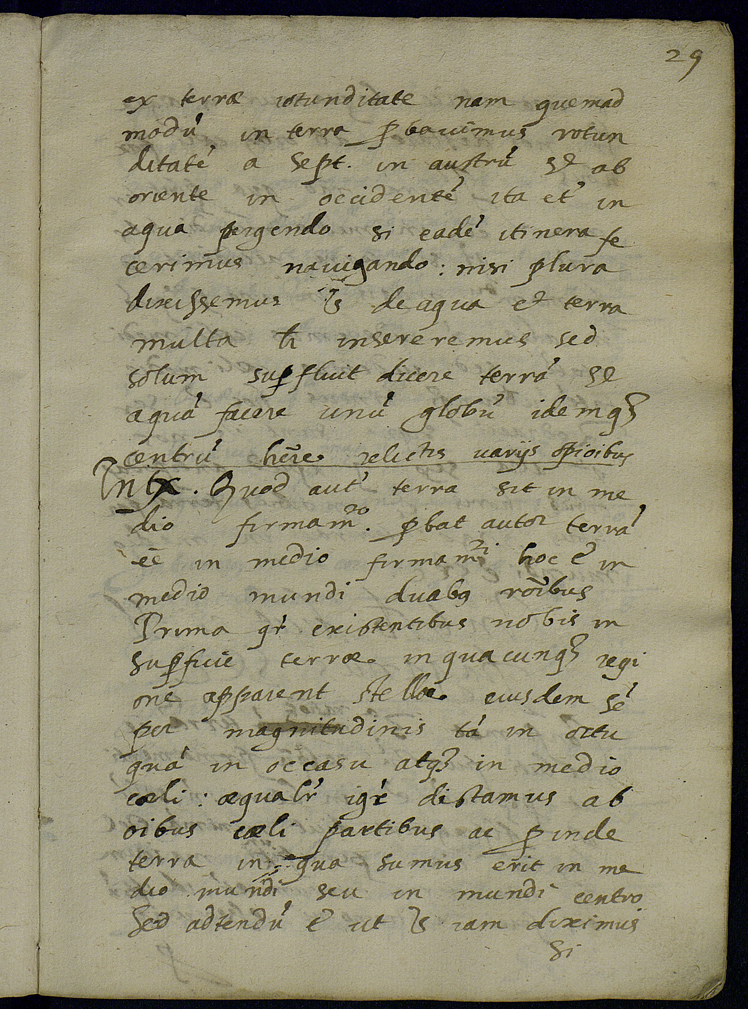 29
ex terræ rotunditate nam quemad
modū in terra ꝓbauimus rotun
ditatē a Sept. in austrū & ab
oriente in occidentē ita et in
aqua pergendo si eadē itinera fe
cerimus nauigando : nisi plura
dixissemus de aqua et terra
multa h̄ insereremus sed
solum suꝑfluit dicere terrā &
aquā facere unū globū idemqꝫ
centrū hēre relictis uarijs opīoibus
In tx. Quod aut terra sit in me
dio firmam̄to. ꝓbat autor terrā
ēē in medio firmam̄ti hoc ē in
medio mundi duabꝯ rōībus
Prima qr existentibus nobis in
suꝑficie terræ in quacunqꝫ regi
onē apparent stellæ eiusdem sē
per magnitudinis tā in ortu
quā in occasu atqꝫ in medio
cæli : æqualr igr distamus ab
oībus cæli partibus ac ꝓinde
terra in qua sumus erit in me
dio mundi seu in mundi centro
Sed adtendū ē ut iam diximus
Si